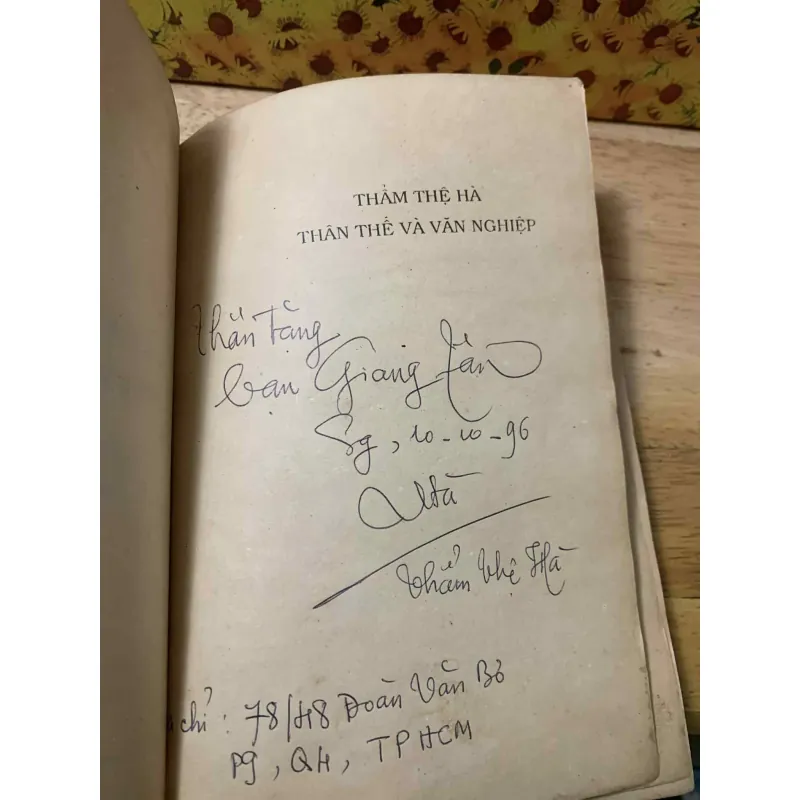 THẨM THỆ HÀ
THÂN THẾ VÀ VĂN NGHIỆP
Thân Tặng
bạn Giang Tân
Sg, 10-10-96
Hà
Thẩm Thệ Hà
chỉ: 78/48 Đoàn Văn Bơ
P9, Q4, TPHCM